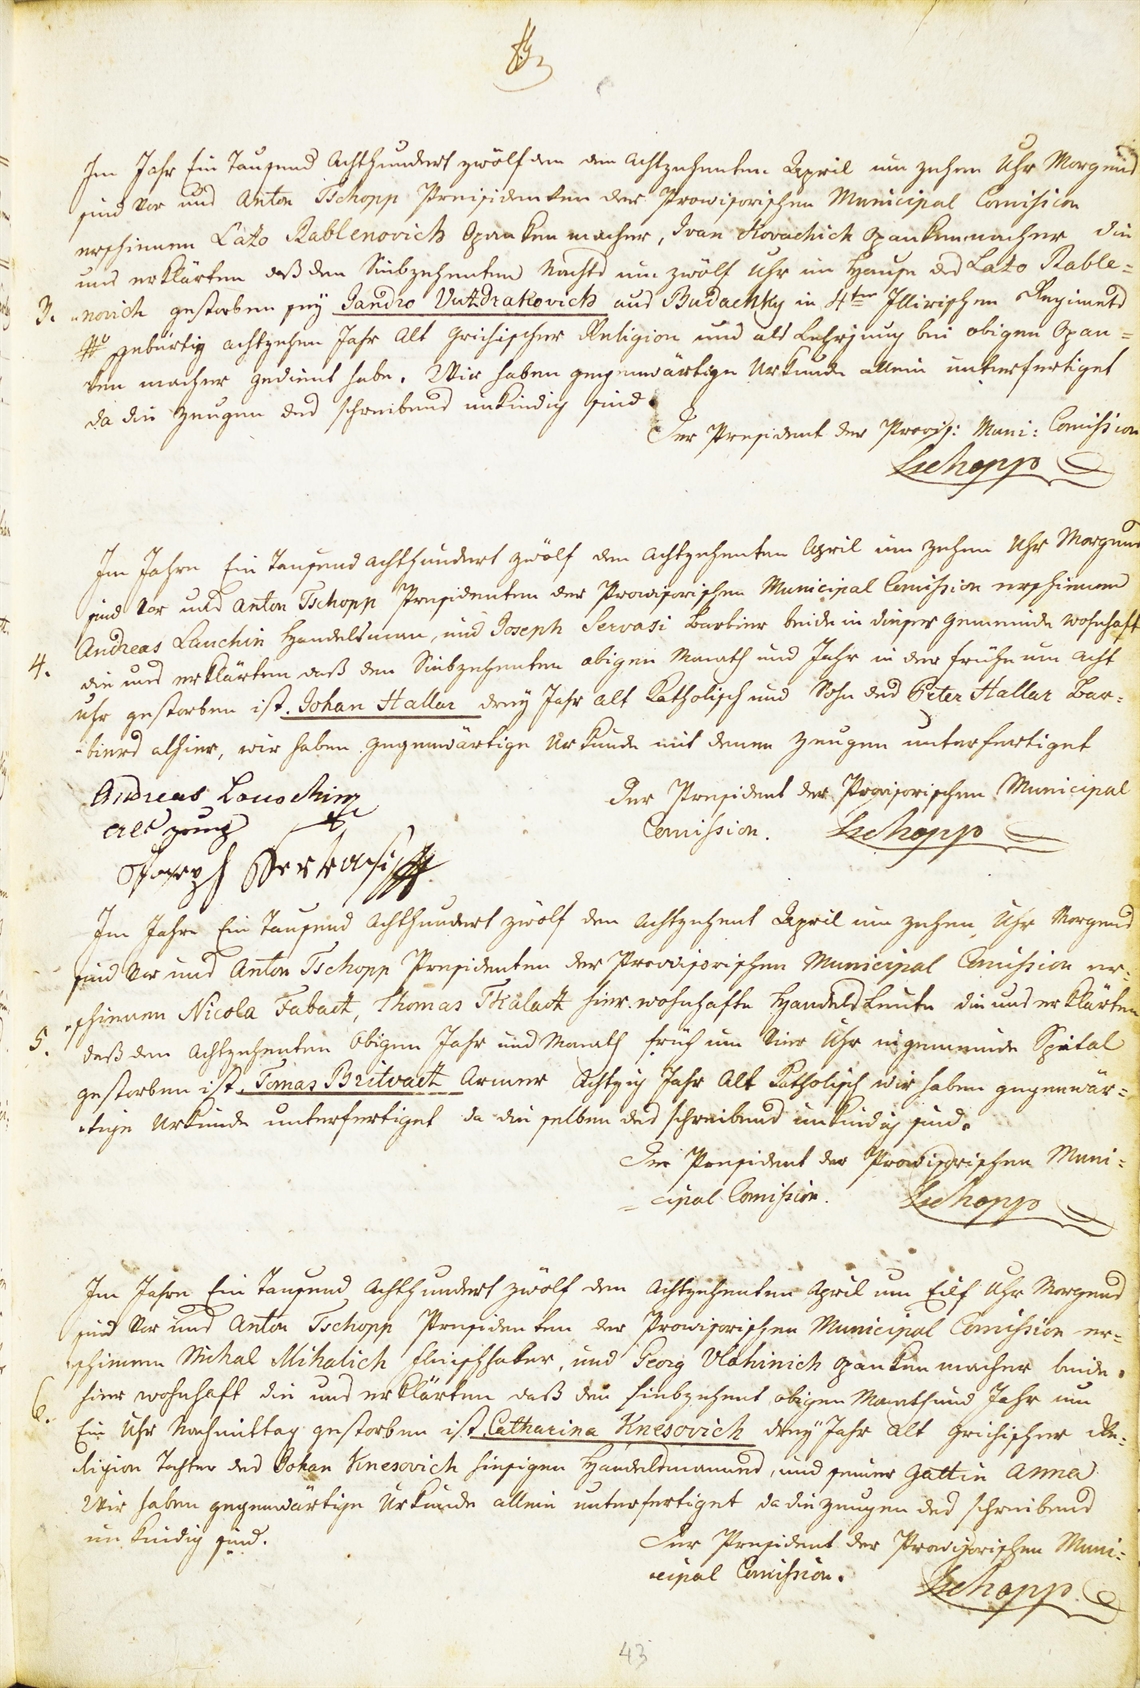 Im Jahr Ein Tausend Achthundert zwölf den den Achtzehenten April um zehen Uhr Morgens
sind vor uns Anton Tschopp Presidenten der Provisorischen Municipal Comission
erschienen Lazo Rablenovich Opankenmacher, Ivan Kovachich Opankenmacher die
uns erklärten daß den Siebzehenten Nachts um zwölf Uhr im Hause des Lazo Rable=
3. =novich gestorben sey Jandro Vuzdrakovich aus Budachky in 4ten Illirischen Regiments
gebürtig achtzehen Jahr Alt Grichischer Religion und als Lehrjung bei obigen Opan=
ken macher gedient habe. Wir haben gegenwärtige Urkunde allein unterfertiget
da die Zeugen des schreibens unkündig sind.
Der President der Provis: Muni: Comission
Tschopp
Im Jahre Ein Tausend Achthundert zwölf den Achtzehenten April um zehen Uhr Morgens
sind vor uns Anton Tschopp Presidenten der Provisorischen Municipal Comission erschienen
Andreas Lauchin Handelsman, und Joseph Servasi Barbier beide in dieser Gemeinde wohnhaft
4. die uns erklärten daß den Siebzehenten obigen Monath und Jahr in der frühe um acht
Uhr gestorben ist Johan Hallar drey Jahr alt Katholisch und Sohn des Peter Hallar Bar=
=biers alhier, wir haben gegenwärtige Urkunde mit denen Zeugen unterfertiget
Andreas Lauschin
als zeug
Der President der Provisorischen Municipal
Comission. Tschopp
Joseph Servasi
Im Jahre Ein Tausend Achthundert zwölf den Achtzehent April um zehen Uhr Morgens
sind vor uns Anton Tschopp Presidenten der Provisorischen Municipal Comission er=
=schienen Nicola Fabaet, Thomas Tkalaet hier wohnhafte Handelsleute die uns erklärten
5. daß den Achtzehenten Obigen Jahr und Monath früh um vier Uhr in gemeinde Spital
gestorben ist Tomas Britvaet Armer Achtzig Jahr Alt Katholisch wir haben gegenwär=
=tige Urkunde unterfertiget da die selben des schreibens unkündig sind.
Der President der Provisorischen Muni=
=cipal Comission. Tschopp
Im Jahre Ein Tausend Achthundert zwölf den Achtzehenten April um Eilf Uhr Morgens
sind vor uns Anton Tschopp Presidenten der Provisorischen Municipal Comission er=
schienen Michal Mihalich fleischhaker, und Georg Vlahinich Opankenmacher beide
hier wohnhaft die uns erklärten daß den siebzehent obigen Monath und Jahr um
6. Ein Uhr Nachmittag gestorben ist Catharina Knesovich drey Jahr alt Grichischer Re=
ligion Tochter des Johan Knesovich hiesigen Handelsmanns, und seiner Gattin Anna
Wir haben gegenwärtige Urkunde allein unterfertiget da die Zeugen des schreibens
unkündig sind.
Der President der Provisorischen Muni=
=cipal Comission.
Tschopp
43